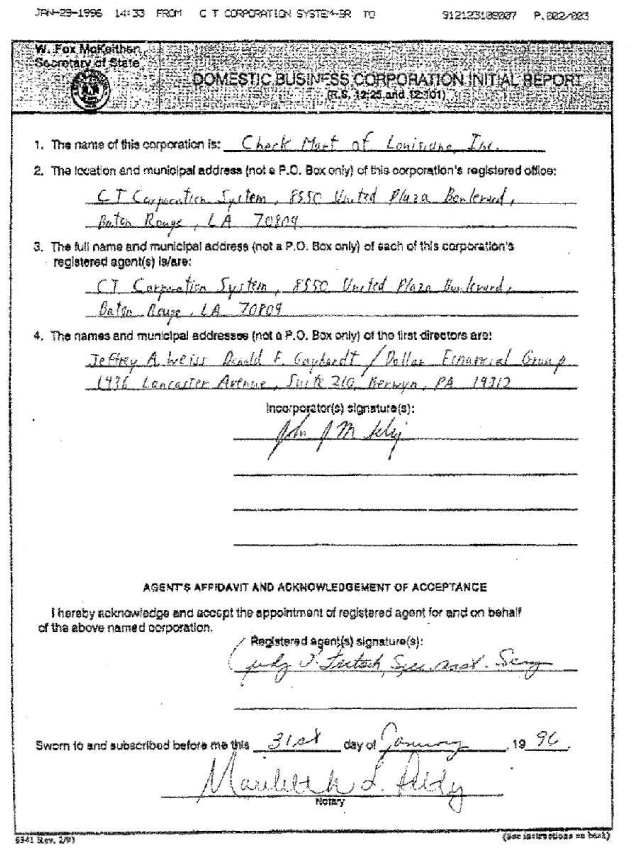 JAN-29-1996 14:33 FROM C T CORPORATION SYSTEM-BR TO 912123109007 P.002/003
W. Fox McKeithen
Secretary of State
DOMESTIC BUSINESS CORPORATION INITIAL REPORT
(R.S. 12:25 and 12:101)
1. The name of this corporation is: Check Mart of Louisiana, Inc.
2. The location and municipal address (not a P.O. Box only) of this corporation's registered office:
CT Corporation System, 8550 United Plaza Boulevard,
Baton Rouge, LA 70809
3. The full name and municipal address (not a P.O. Box only) of each of this corporation's
registered agent(s) is/are:
CT Corporation System, 8550 United Plaza Boulevard,
Baton Rouge, LA 70809
4. The names and municipal addresses (not a P.O. Box only) of the first directors are:
Jeffrey A. Weiss Donald F. Gayhardt / Dollar Financial Group
1436 Lancaster Avenue, Suite 210, Berwyn, PA 19312
Incorporator(s) signature(s):
John M
AGENT'S AFFIDAVIT AND ACKNOWLEDGEMENT OF ACCEPTANCE
I hereby acknowledge and accept the appointment of registered agent for and on behalf
of the above named corporation.
Registered agent(s) signature(s):
Judy
Sworn to and subscribed before me this 31st day of January, 19 96.
Notary
6341 Rev. 2/91 (See instructions on back)